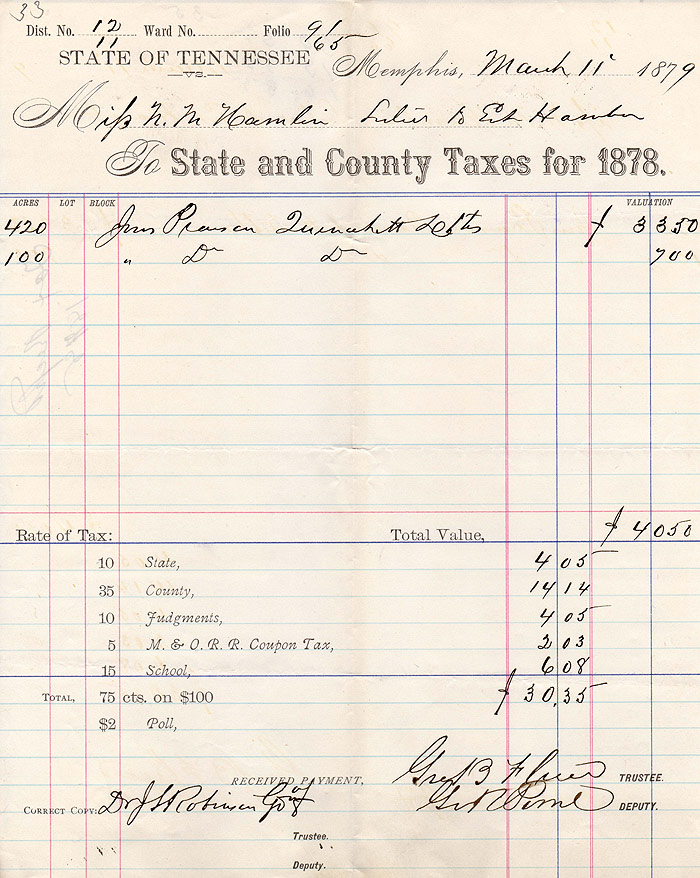 33
Dist. No. 12 Ward No. Folio 91
11 65
STATE OF TENNESSEE
—VS.—
Memphis, March 11 1879
Miss N. M. Hamlin
To State and County Taxes for 1878.
ACRES LOT BLOCK VALUATION
420 $ 3350
100 " Do Do 700
Rate of Tax: Total Value, $ 4050
10 State, 4 05
35 County, 14 14
10 Judgments, 4 05
5 M. & O. R. R. Coupon Tax, 2 03
15 School, 6 08
TOTAL, 75 cts. on $100 $ 30.35
$2 Poll,
RECEIVED PAYMENT,
Geo B TRUSTEE.
CORRECT COPY: Dr J S Robinson DEPUTY.
Trustee.
Deputy.